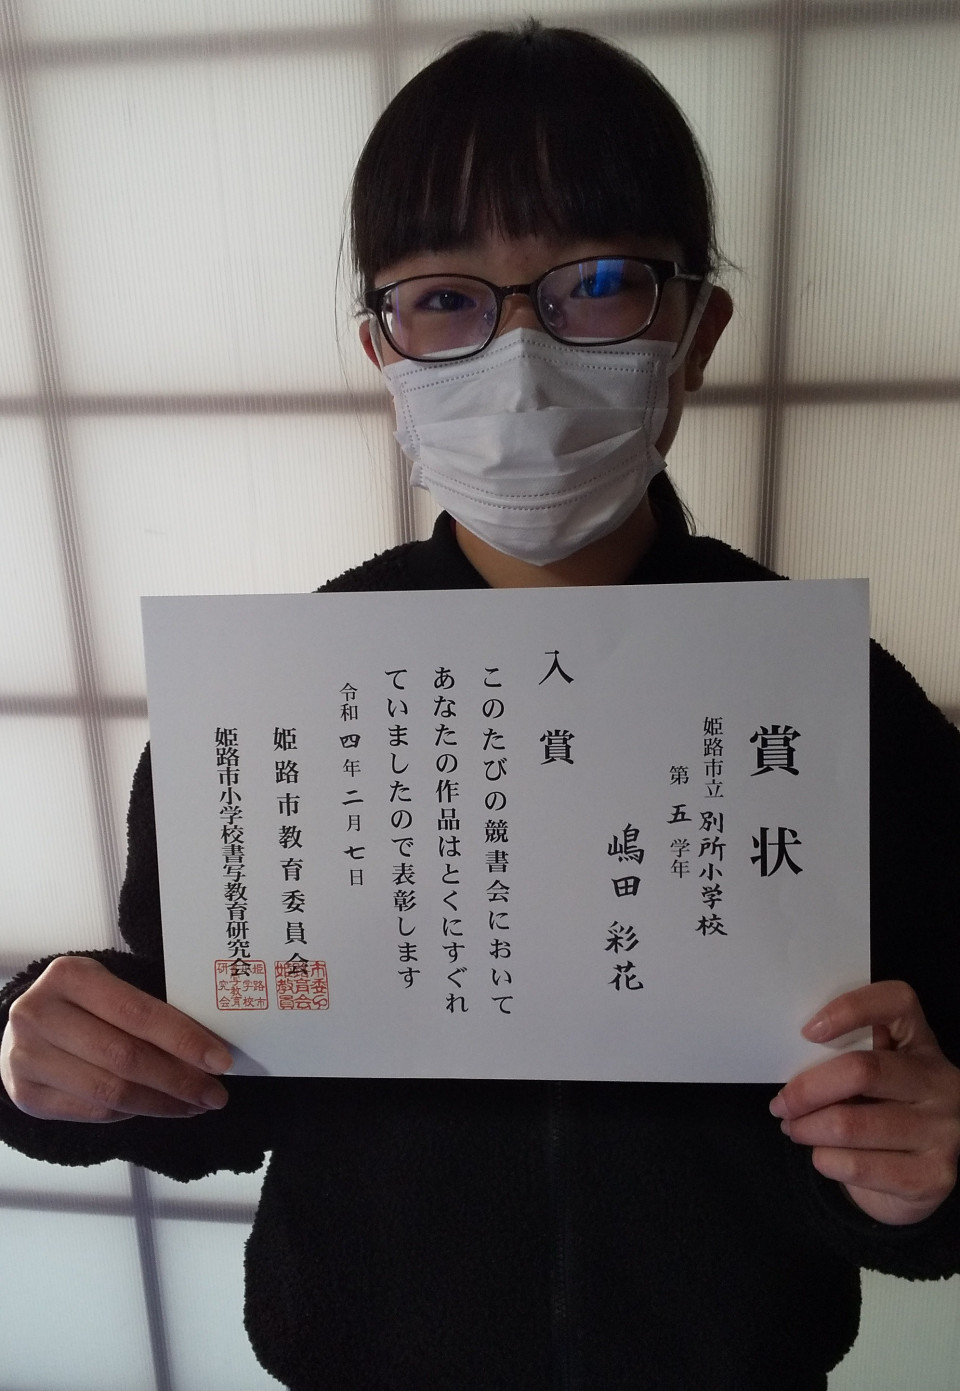 賞状
姫路市立別所小学校
第五学年
嶋田彩花
入賞
このたびの競書会において
あなたの作品はとくにすぐれ
ていましたので表彰します
令和四年二月七日
姫路市教育委員会
姫路市小学校書写教育研究会